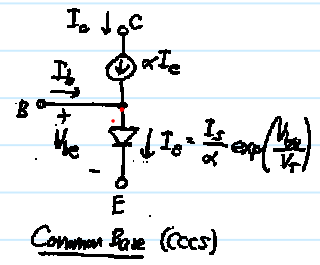 I_c ↓ C
αI_e
I_b
B
+
V_be
I_e = I_s/α exp(V_be/V_T)
-
E
Common Base (CCCS)